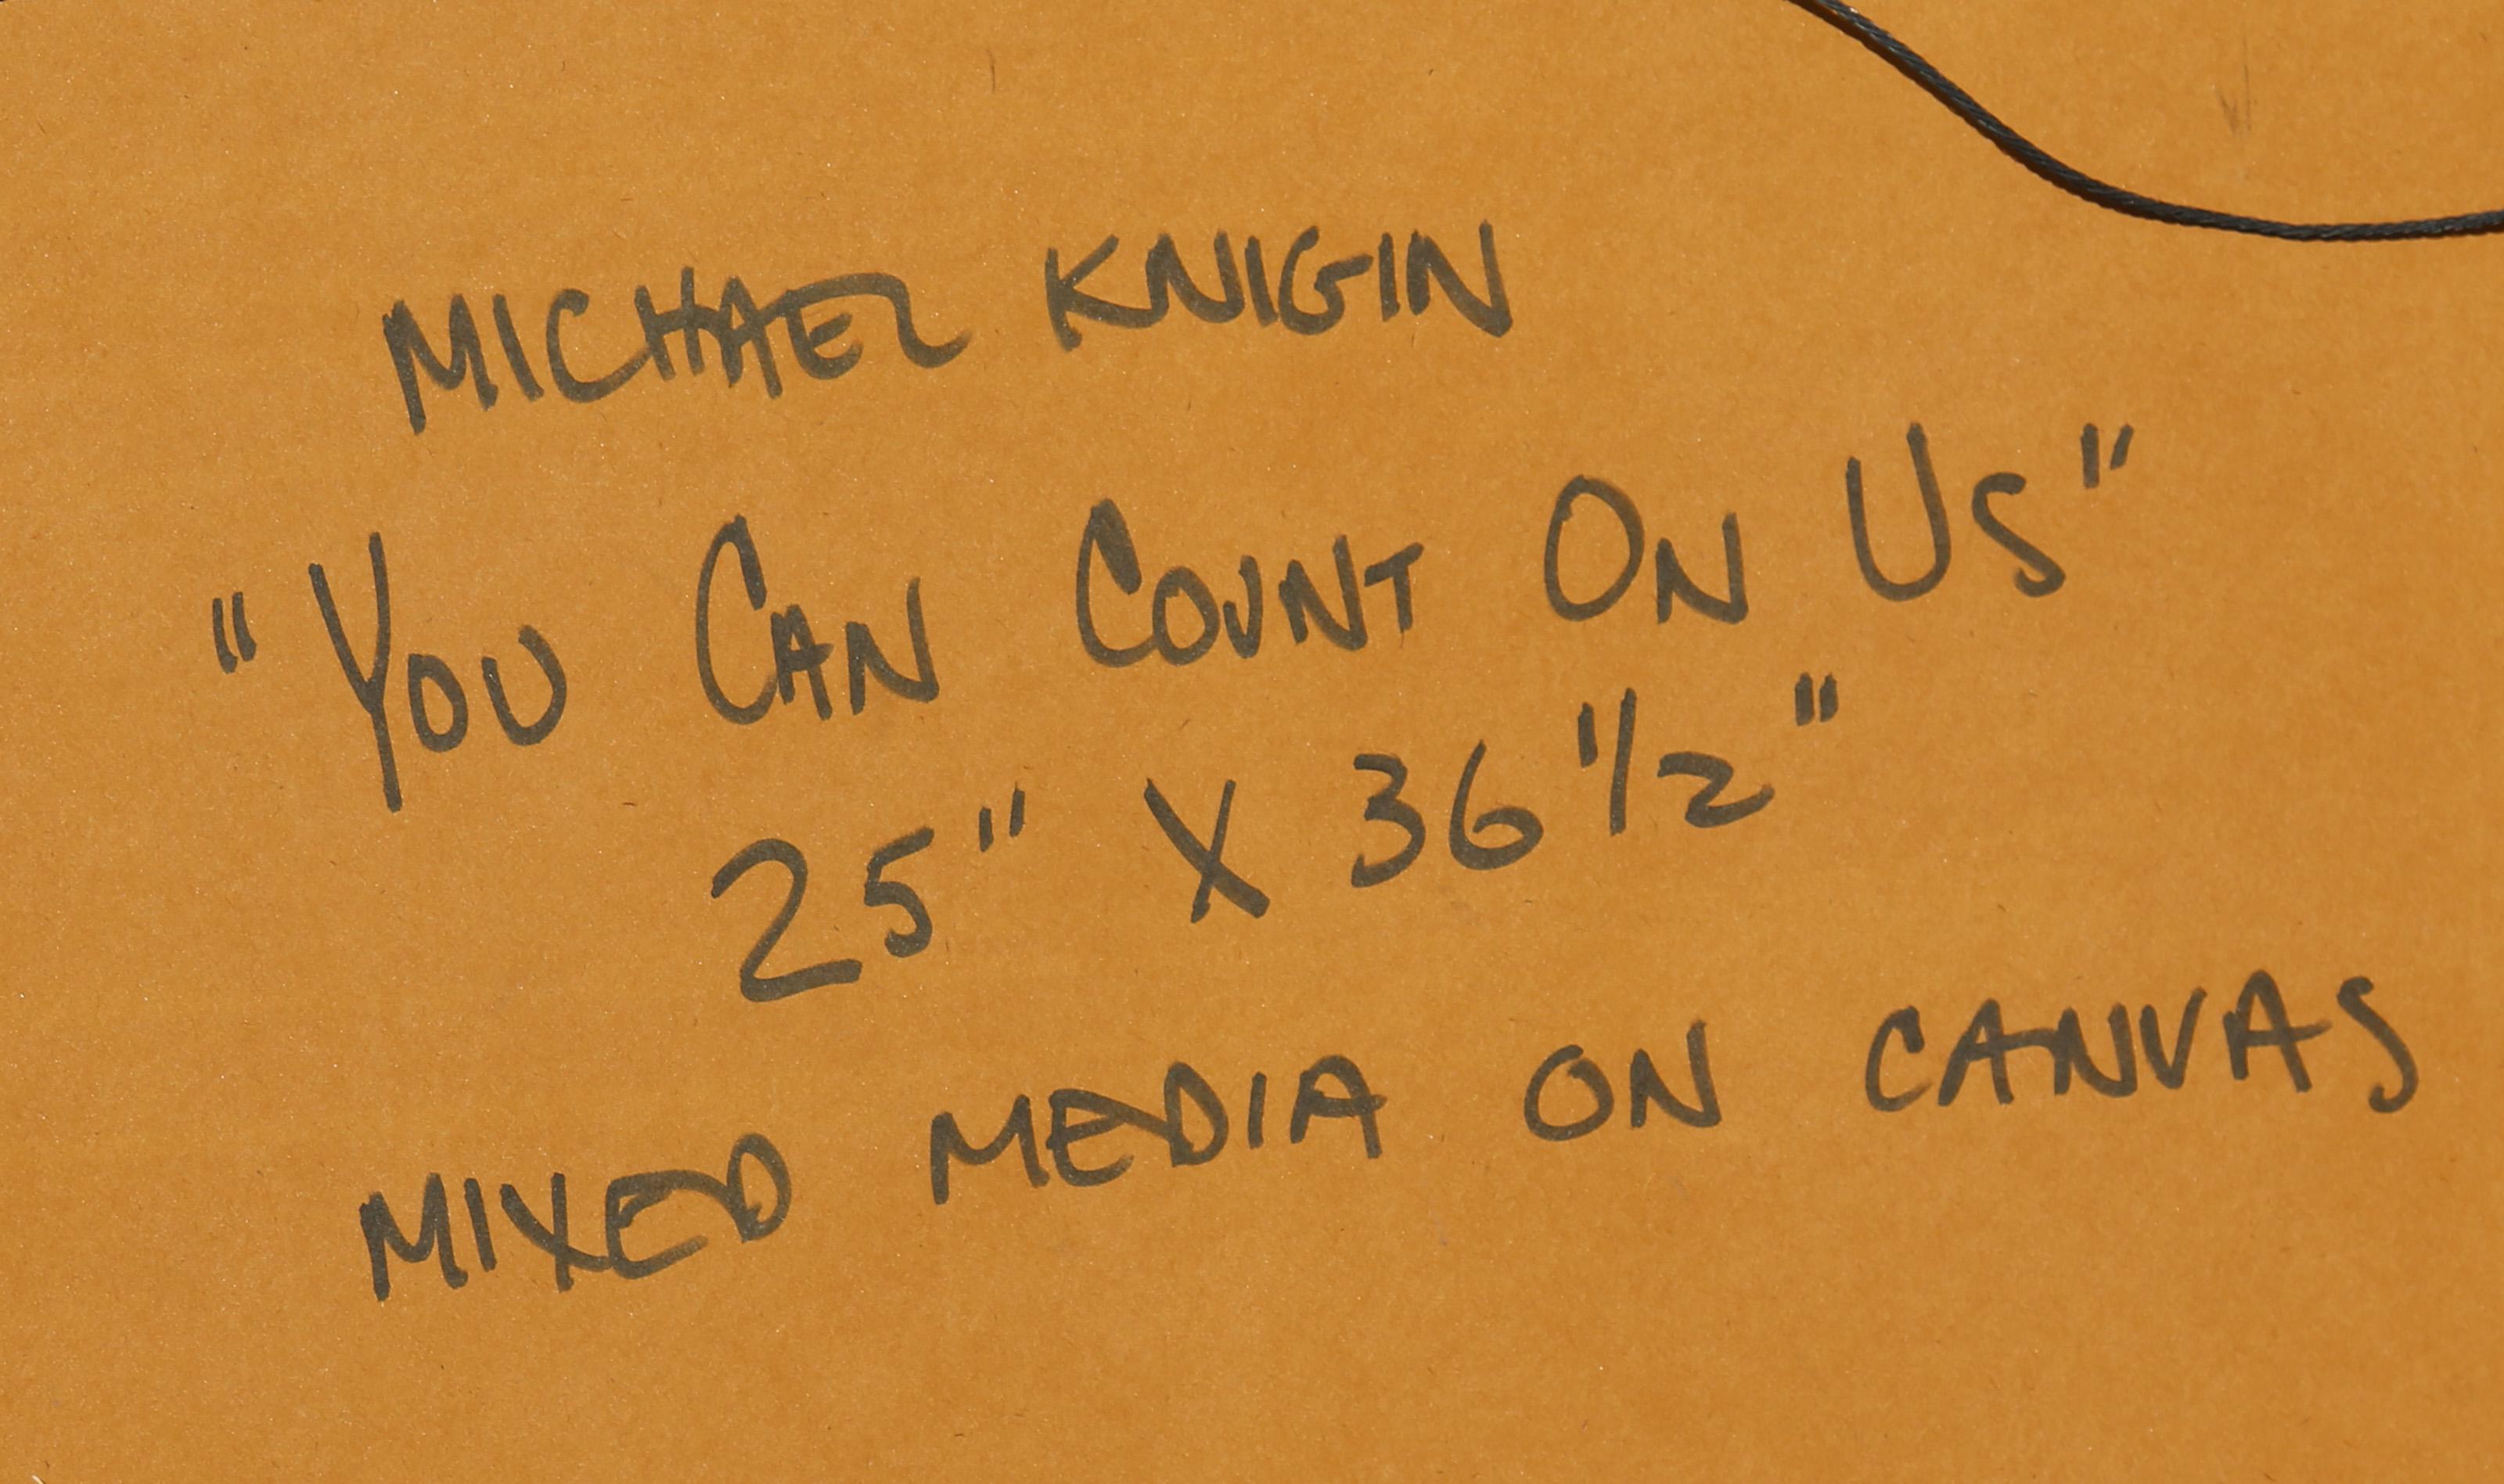 MICHAEL KNIGIN
"YOU CAN COUNT ON US"
25" X 36 1/2"
MIXED MEDIA ON CANVAS